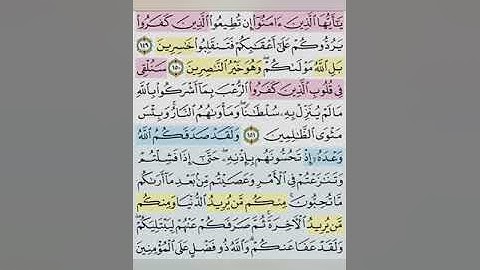 يَـٰٓأَيُّهَا ٱلَّذِينَ ءَامَنُوٓا۟ إِن تُطِيعُوا۟ ٱلَّذِينَ كَفَرُوا۟
يَرُدُّوكُمْ عَلَىٰٓ أَعْقَـٰبِكُمْ فَتَنقَلِبُوا۟ خَـٰسِرِينَ ١٤٩
بَلِ ٱللَّهُ مَوْلَىٰكُمْ ۖ وَهُوَ خَيْرُ ٱلنَّـٰصِرِينَ ١٥٠ سَنُلْقِى
فِى قُلُوبِ ٱلَّذِينَ كَفَرُوا۟ ٱلرُّعْبَ بِمَآ أَشْرَكُوا۟ بِٱللَّهِ
مَا لَمْ يُنَزِّلْ بِهِۦ سُلْطَـٰنًا ۖ وَمَأْوَىٰهُمُ ٱلنَّارُ ۚ وَبِئْسَ
مَثْوَى ٱلظَّـٰلِمِينَ ١٥١ وَلَقَدْ صَدَقَكُمُ ٱللَّهُ
وَعْدَهُۥٓ إِذْ تَحُسُّونَهُم بِإِذْنِهِۦ ۖ حَتَّىٰٓ إِذَا فَشِلْتُمْ
وَتَنَـٰزَعْتُمْ فِى ٱلْأَمْرِ وَعَصَيْتُم مِّنۢ بَعْدِ مَآ أَرَىٰكُم
مَّا تُحِبُّونَ ۚ مِنكُم مَّن يُرِيدُ ٱلدُّنْيَا وَمِنكُم
مَّن يُرِيدُ ٱلْـَٔاخِرَةَ ۚ ثُمَّ صَرَفَكُمْ عَنْهُمْ لِيَبْتَلِيَكُمْ ۖ
وَلَقَدْ عَفَا عَنكُمْ ۗ وَٱللَّهُ ذُو فَضْلٍ عَلَى ٱلْمُؤْمِنِينَ